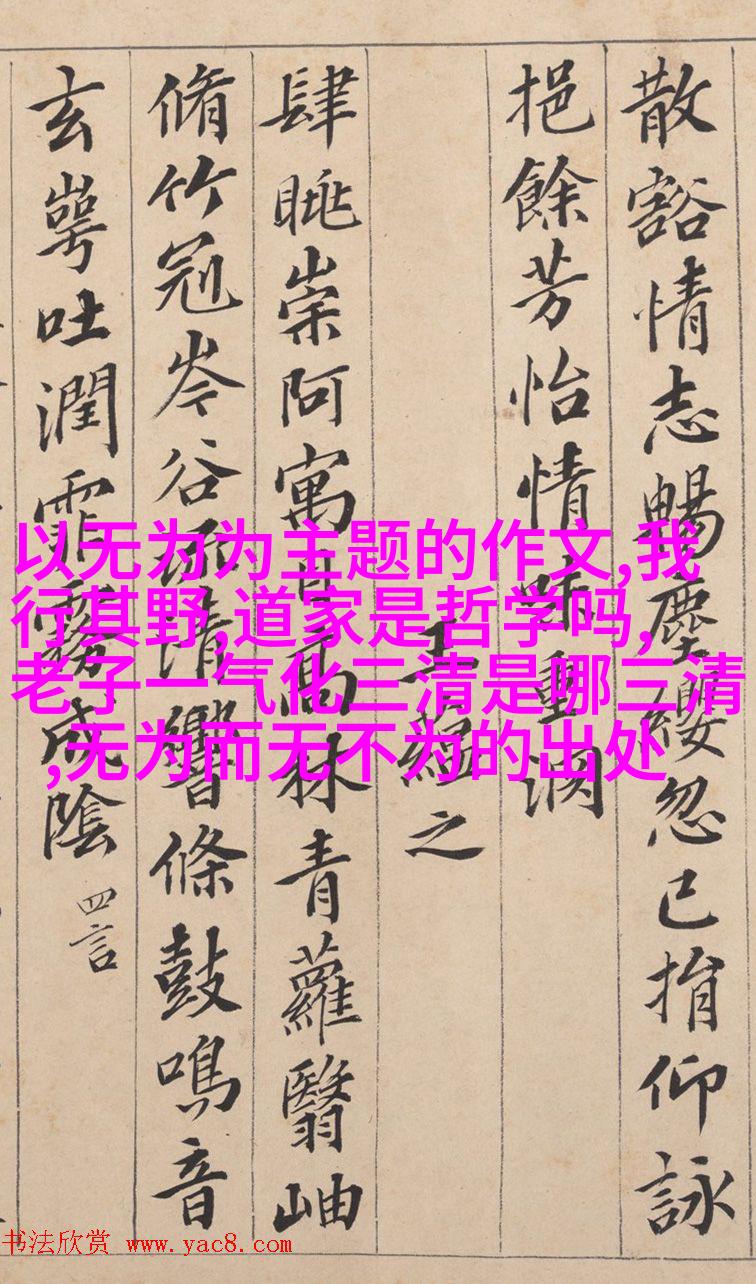 散豁情志暢塵纓忽已捐仰詠
挹餘芳怡情味重淵
王蘊之
肆眺崇阿寓目高林青蘿翳岫
脩竹冠岑谷流清響條鼓鳴音
玄崿吐潤霏霧成陰 四言
以无为为主题的作文,我
行其野,道家是哲学吗,
老子一气化三清是哪三清
,无为而无不为的出处
书法欣赏 www.yac8.com